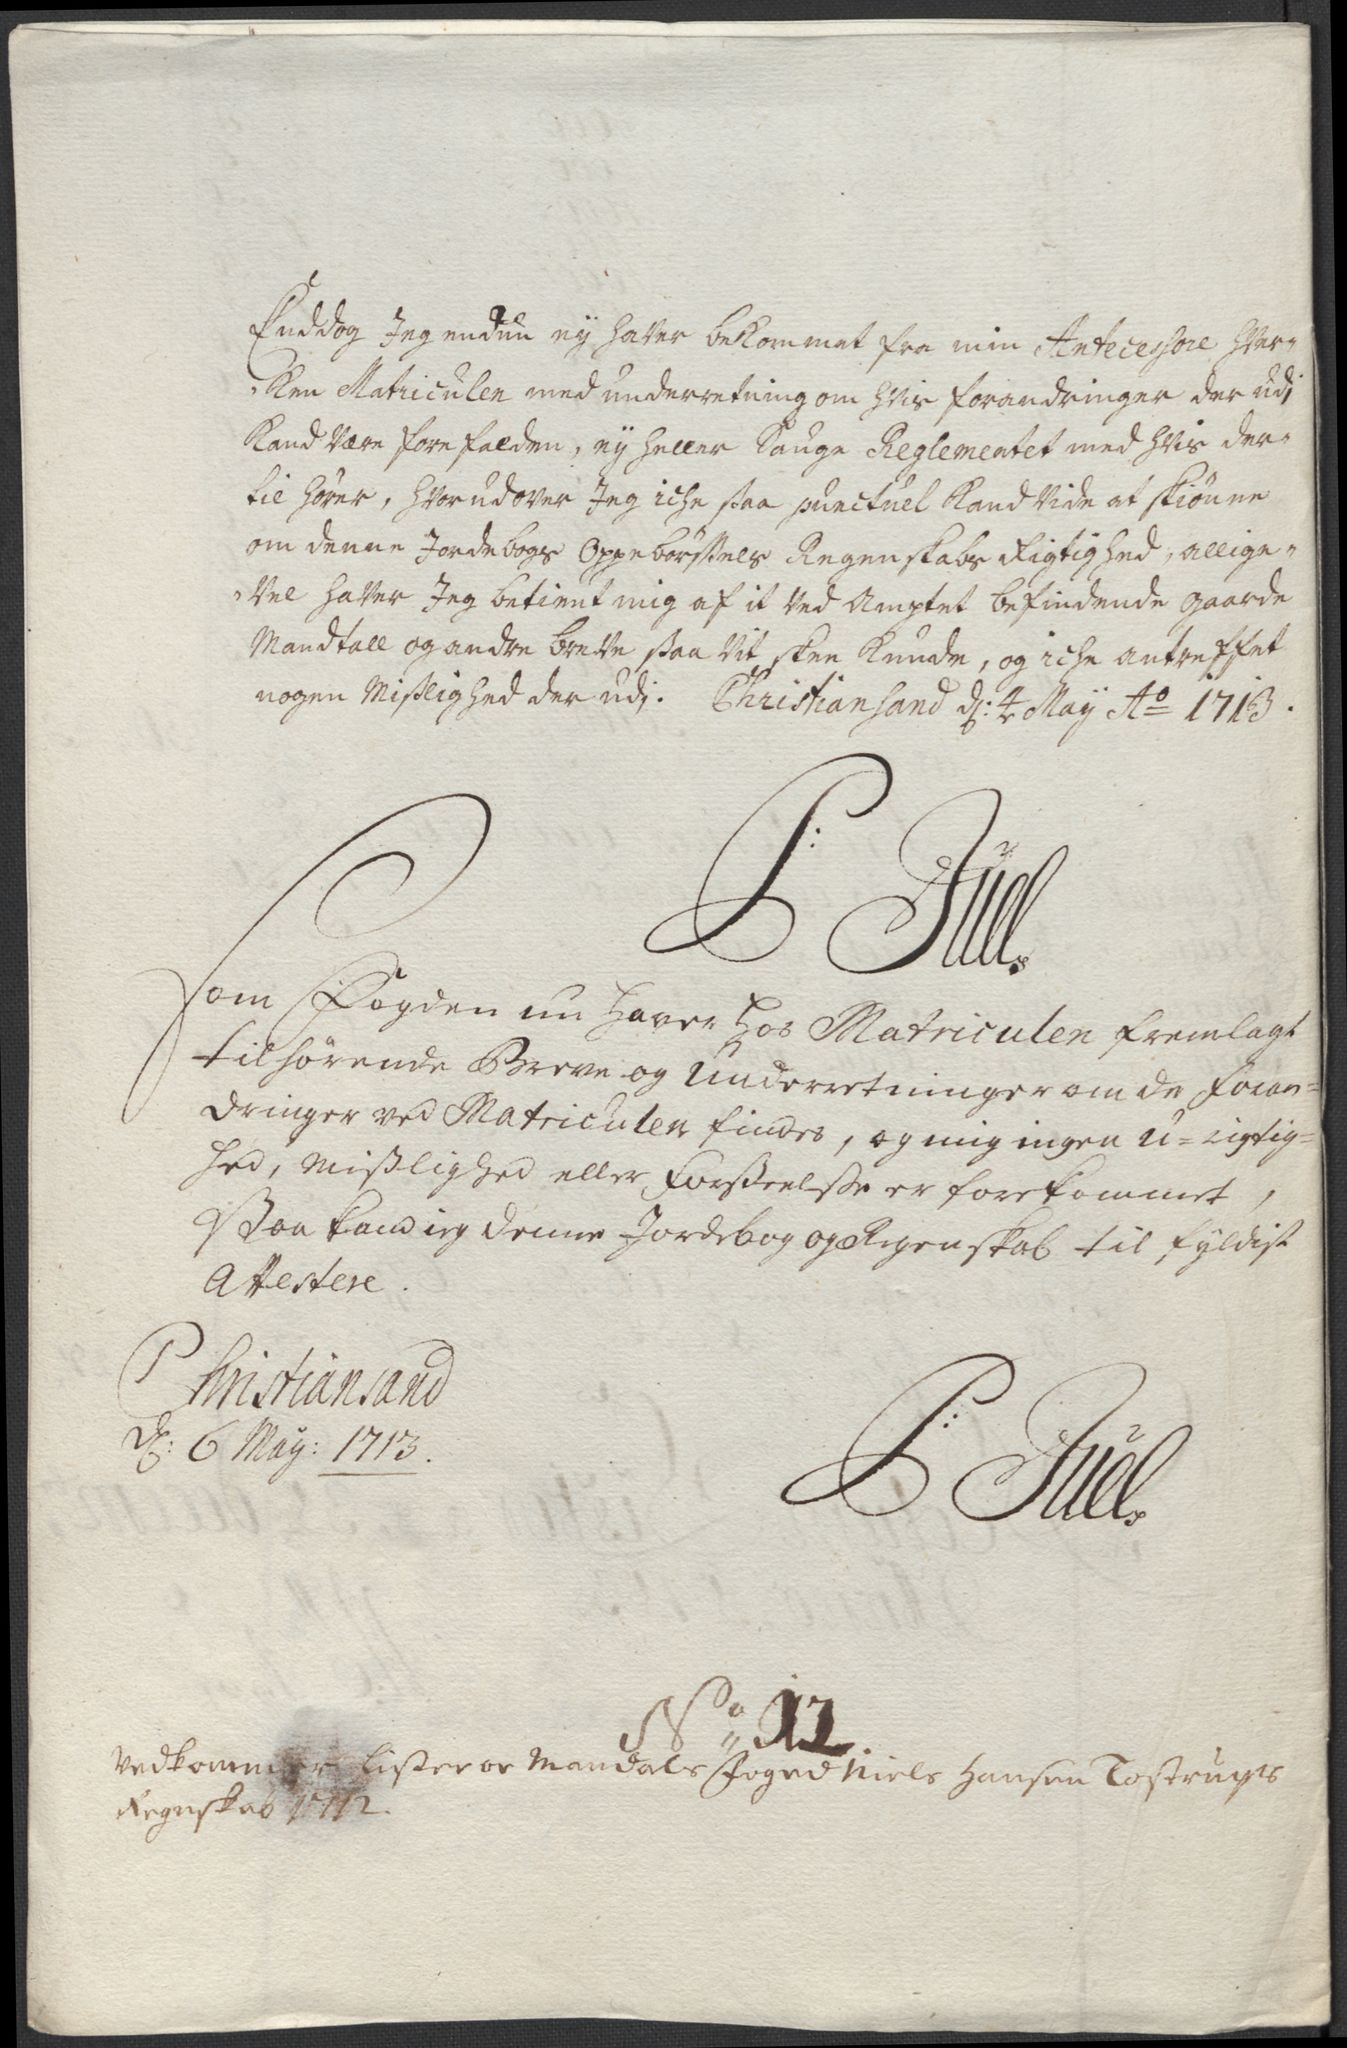 Enddog Jeg endnu ey haver bekommet fra min Antecessore hver-
-ken Matriculen med underretning om hvis forandringer der udj
kand være forefalden, ey heller Lauge Reglementet med hvis der-
til hører, hvorudover Jeg iche saa punctuel kand vide at skiønne
om denne Jordebogs Oppebørsels Regenskabs Rigtighed, allige-
-vel haver Jeg betient mig af it ved Amptet befindende gaarde
Mandtall og andre breve saa vit skee kunde, og iche antreffet
nogen Misslighed der udj. Christiansand d: 4 Maÿ Ao 1713.
P: Juel
Som Fogden nu haver hos Matriculen fremlagt
tilhørende Breve og Underretninger om de Foran=
dringer ved Matriculen findes, og mig ingen U=rigtig=
hed, Misslighed eller Forseelse er forekommet,
Saa kand ieg denne Jordebog og Regenskab til fyldist
Attestere.
Christiansand
d: 6 Maÿ: 1713.
P: Juel
No 12
Vedkommer Lister oc Mandals Foged Niels Hansen Tostrups
Regnskab 1712.